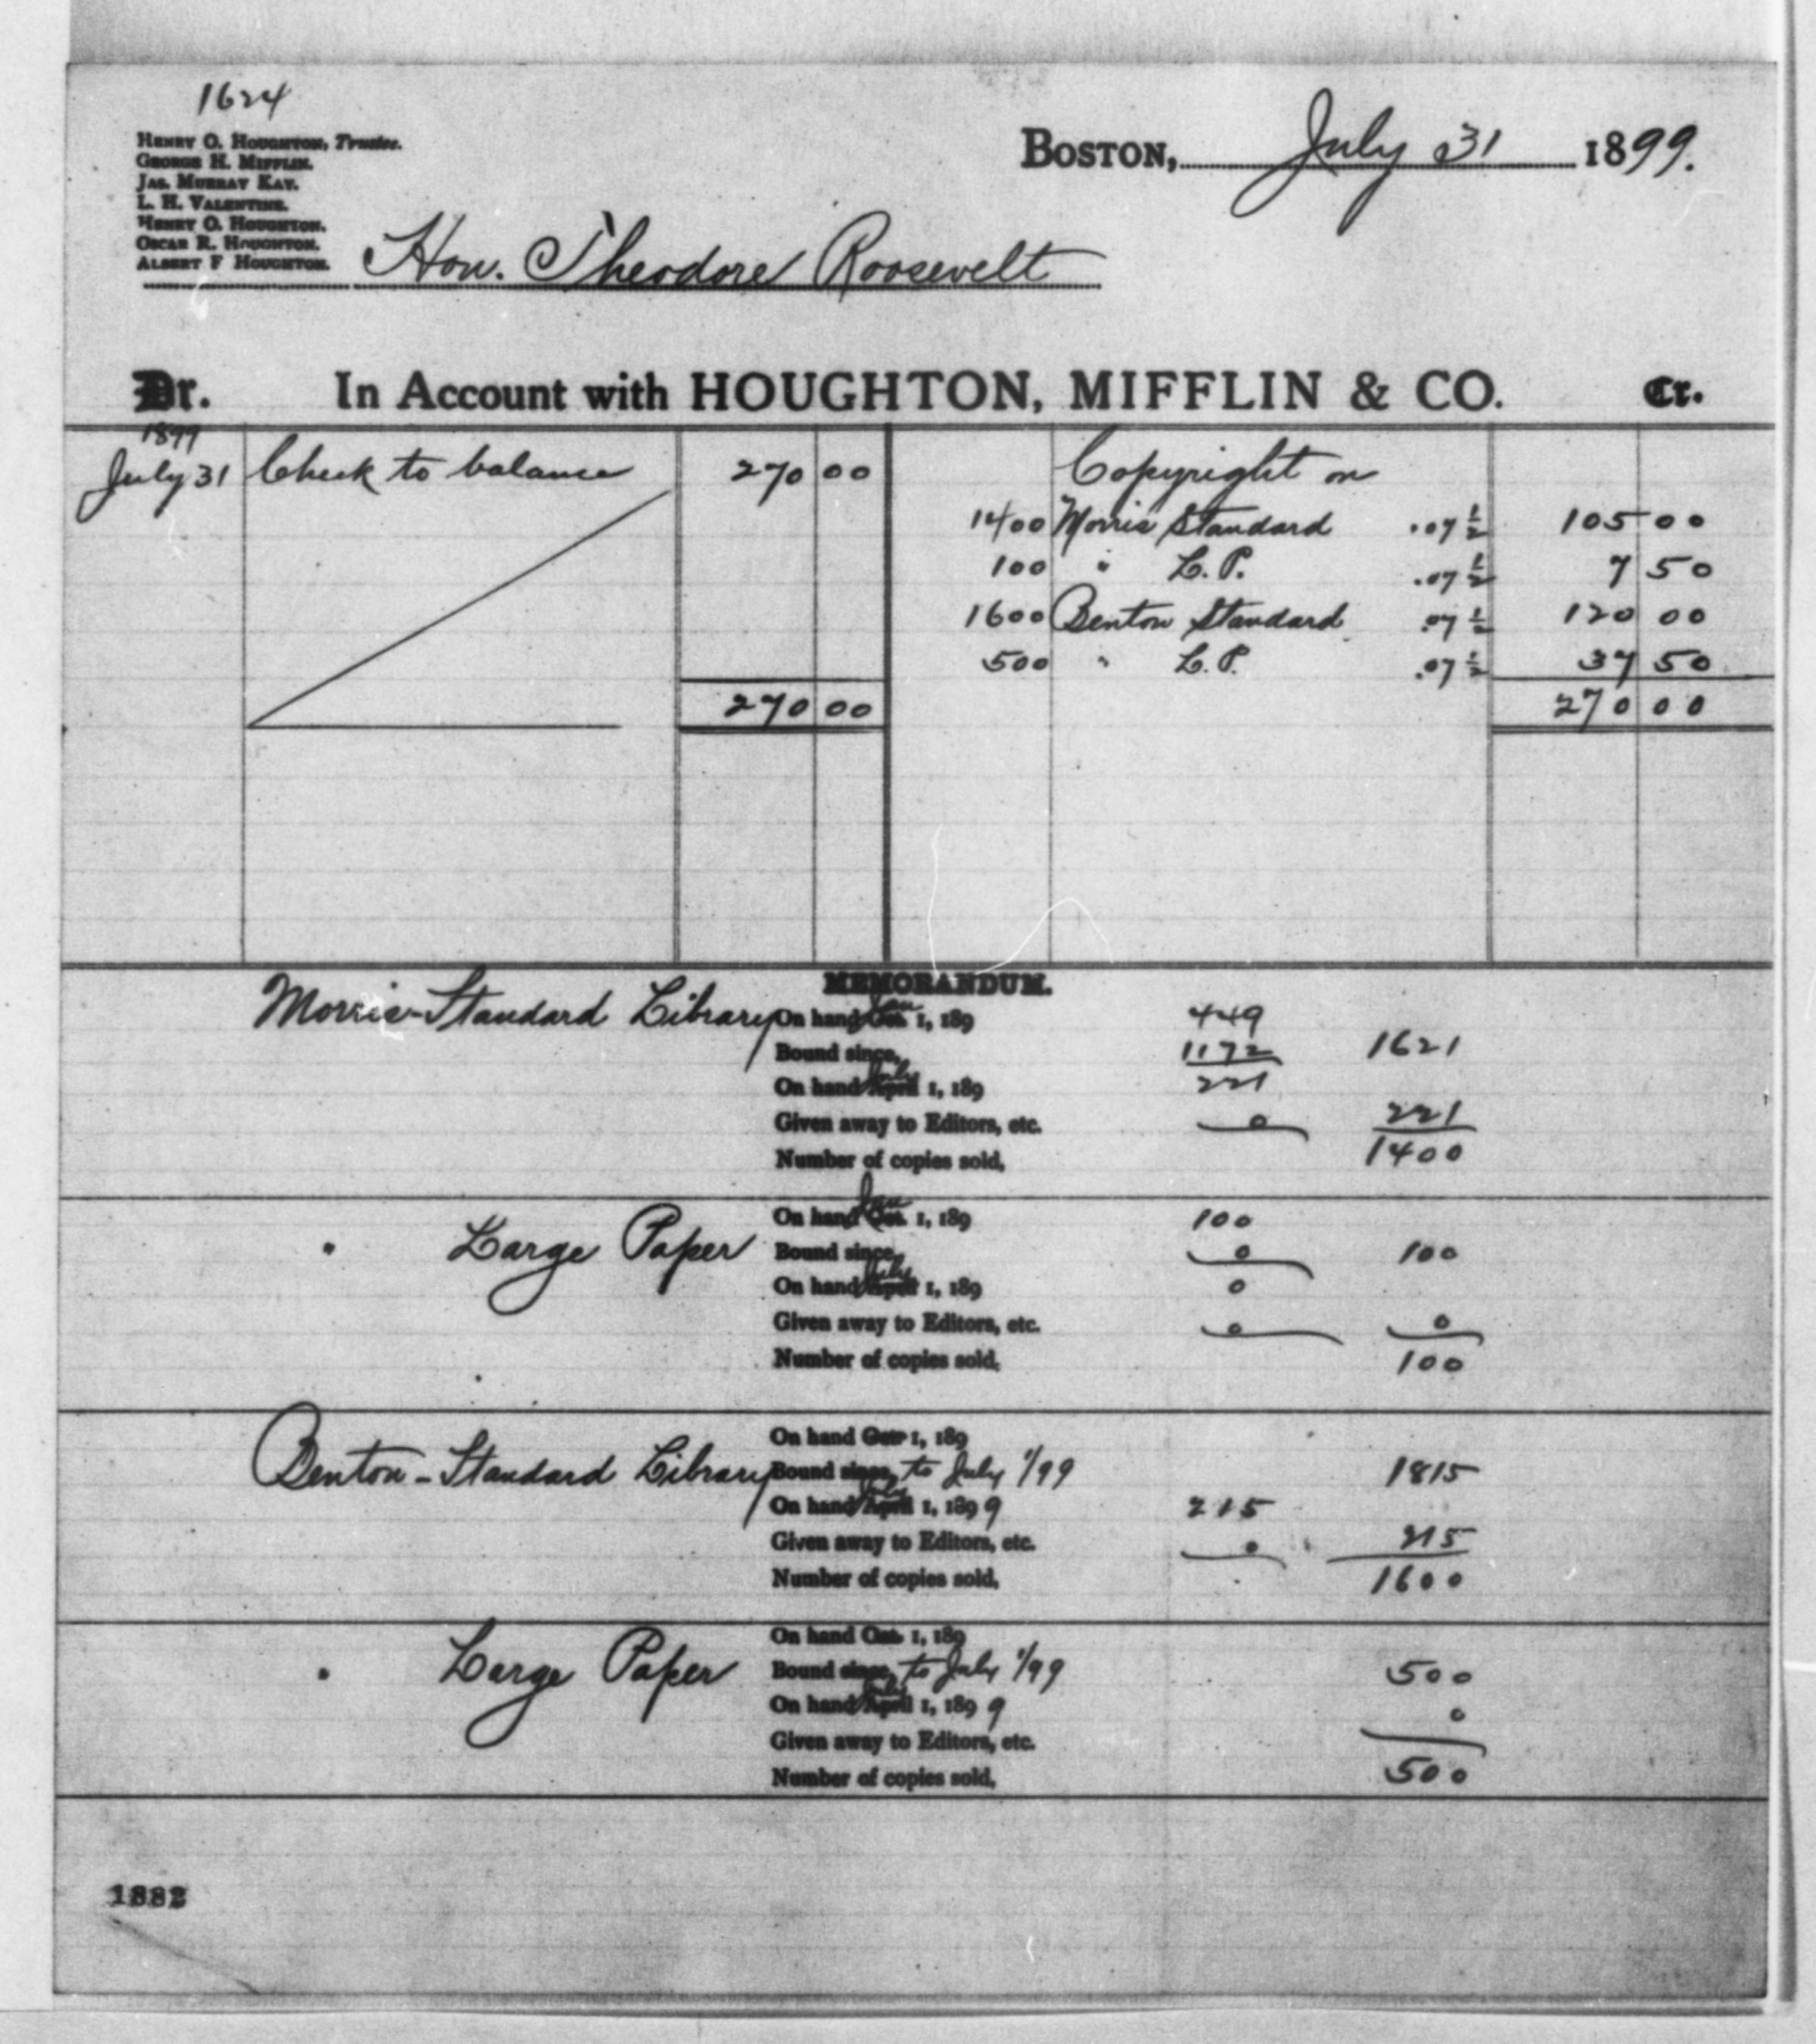 1624
Henry O. Houghton, Trustee.
George H. Mifflin.
Jas. Murray Kay.
L. H. Valentine.
Henry O. Houghton.
Oscar R. Houghton.
Albert F Houghton.
Boston, July 31 1899.
Hon. Theodore Roosevelt
Dr. In Account with HOUGHTON, MIFFLIN & CO. Cr.
1899
July 31 Check to balance 270 00 Copyright on
1400 Morris Standard .07 1/2 105 00
100 " L. P. .07 1/2 7 50
1600 Benton Standard .07 1/2 120 00
500 " L. P. .07 1/2 37 50
270 00 270 00
MEMORANDUM.
Morris-Standard Library On hand Jan 1, 189 449
Bound since, 1172 1621
On hand July 1, 189 221
Given away to Editors, etc. 0 221
Number of copies sold, 1400
On hand Jan 1, 189 100
" Large Paper Bound since, 0 100
On hand July 1, 189 0
Given away to Editors, etc. 0 0
Number of copies sold, 100
On hand Oct 1, 189
Benton-Standard Library Bound since, to July 1/99 1815
On hand July 1, 1899 215
Given away to Editors, etc. 0 215
Number of copies sold, 1600
On hand Oct. 1, 189
" Large Paper Bound since, to July 1/99 500
On hand July 1, 1899 0
Given away to Editors, etc.
Number of copies sold, 500
1882